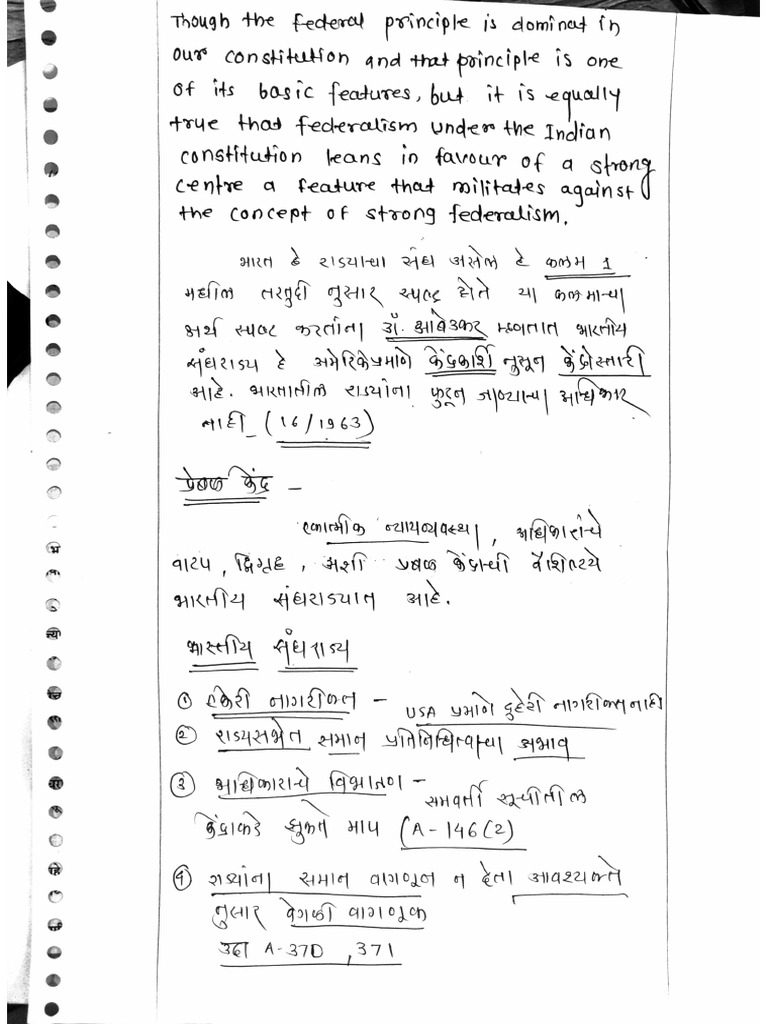 Though the federal principle is dominat in
our constitution and that principle is one
of its basic features, but it is equally
true that federalism under the Indian
constitution leans in favour of a strong
centre a feature that militates against
the concept of strong federalism.
भारत हे राज्याचा संघ असेल हे कलम 1
मधील तरतुदी नुसार स्पष्ट होते या कलमाचा
अर्थ स्पष्ट करतांना डॉ. आंबेडकर म्हणतात भारतीय
संघराज्य हे अमेरिकेप्रमाणे केंद्राकर्शि नुसून केंद्रोस्तारी
आहे. भारतातील राज्यांना फुटून जाण्याचा अधिकार
नाही - (16/1963)
प्रबळ केंद्र -
एकात्मीक न्यायव्यवस्था, अधिकारांचे
वाटप, द्विगृह, अशी प्रबळ केंद्राची वैशिष्टये
भारतीय संघराज्यात आहे.
भारतीय संघराज्य
① एकेरी नागरीकत्व - USA प्रमाणे दुहेरी नागरीकत्व नाही
② राज्यसभेत समान प्रतिनिधित्वाचा अभाव
③ अधिकाराचे विभाजण - समवर्ती सूचीतील
केंद्राकडे झुकते माप (A-146(2)
④ राज्यांना समान वागणूक न देता आवश्यकते
नुसार वेगळी वागणूक
उदा A-370, 371
भ
न्या
रहे